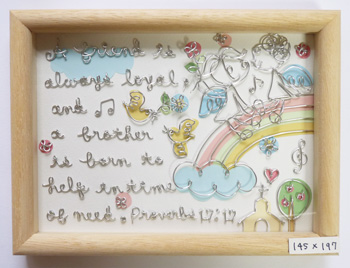 A friend is
always loyal
and
a brother
is born to
help in time
of need. Proverbs 17:17
145 x 197